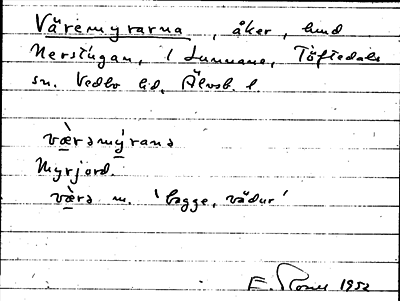 Väremyrarna, åker, hmd
Nerstugan, i Lunnane, Töftedals
sn. Vedbo hd, Älvsb. l.
væ̀rəmýrana
Myrjord.
væ̀rə m. 'bagge, vädur'
E. 1952